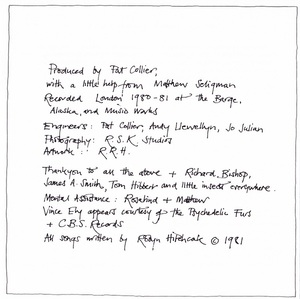 Produced by Pat Collier,
with a little help from Matthew Seligman
Recorded London 1980-81 at the Barge,
Alaska, and Music Works
Engineers: Pat Collier, Andy Llewellyn, Jo Julian
Photography: R.S.K. Studios
Artwork: R.R.H.
Thankyou to all the above + Richard Bishop,
James A. Smith, Tom Hibbert and little insects everywhere.
Mental Assistance: Rosalind + Matthew
Vince Ely appears courtesy of the Psychedelic Furs
+ C.B.S. Records
All songs written by Robyn Hitchcock © 1981